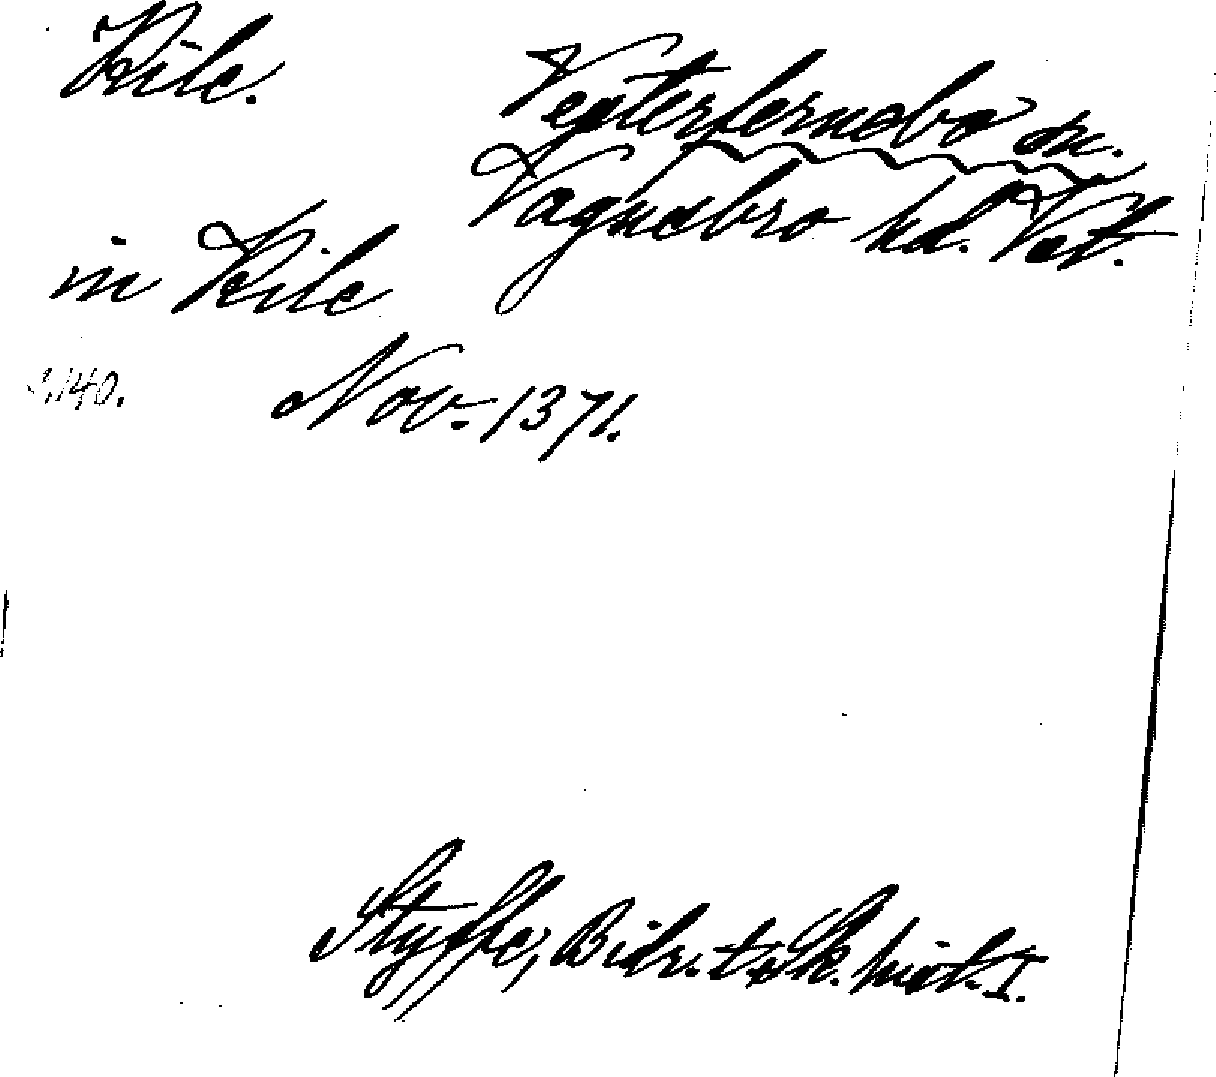 Kile.
Vesterfernebo sn.
Vagnsbro hd. Vst.
in Kile
s. 140. Nov. 1371.
Styffe, Bidr. t. Sk. hist. I.